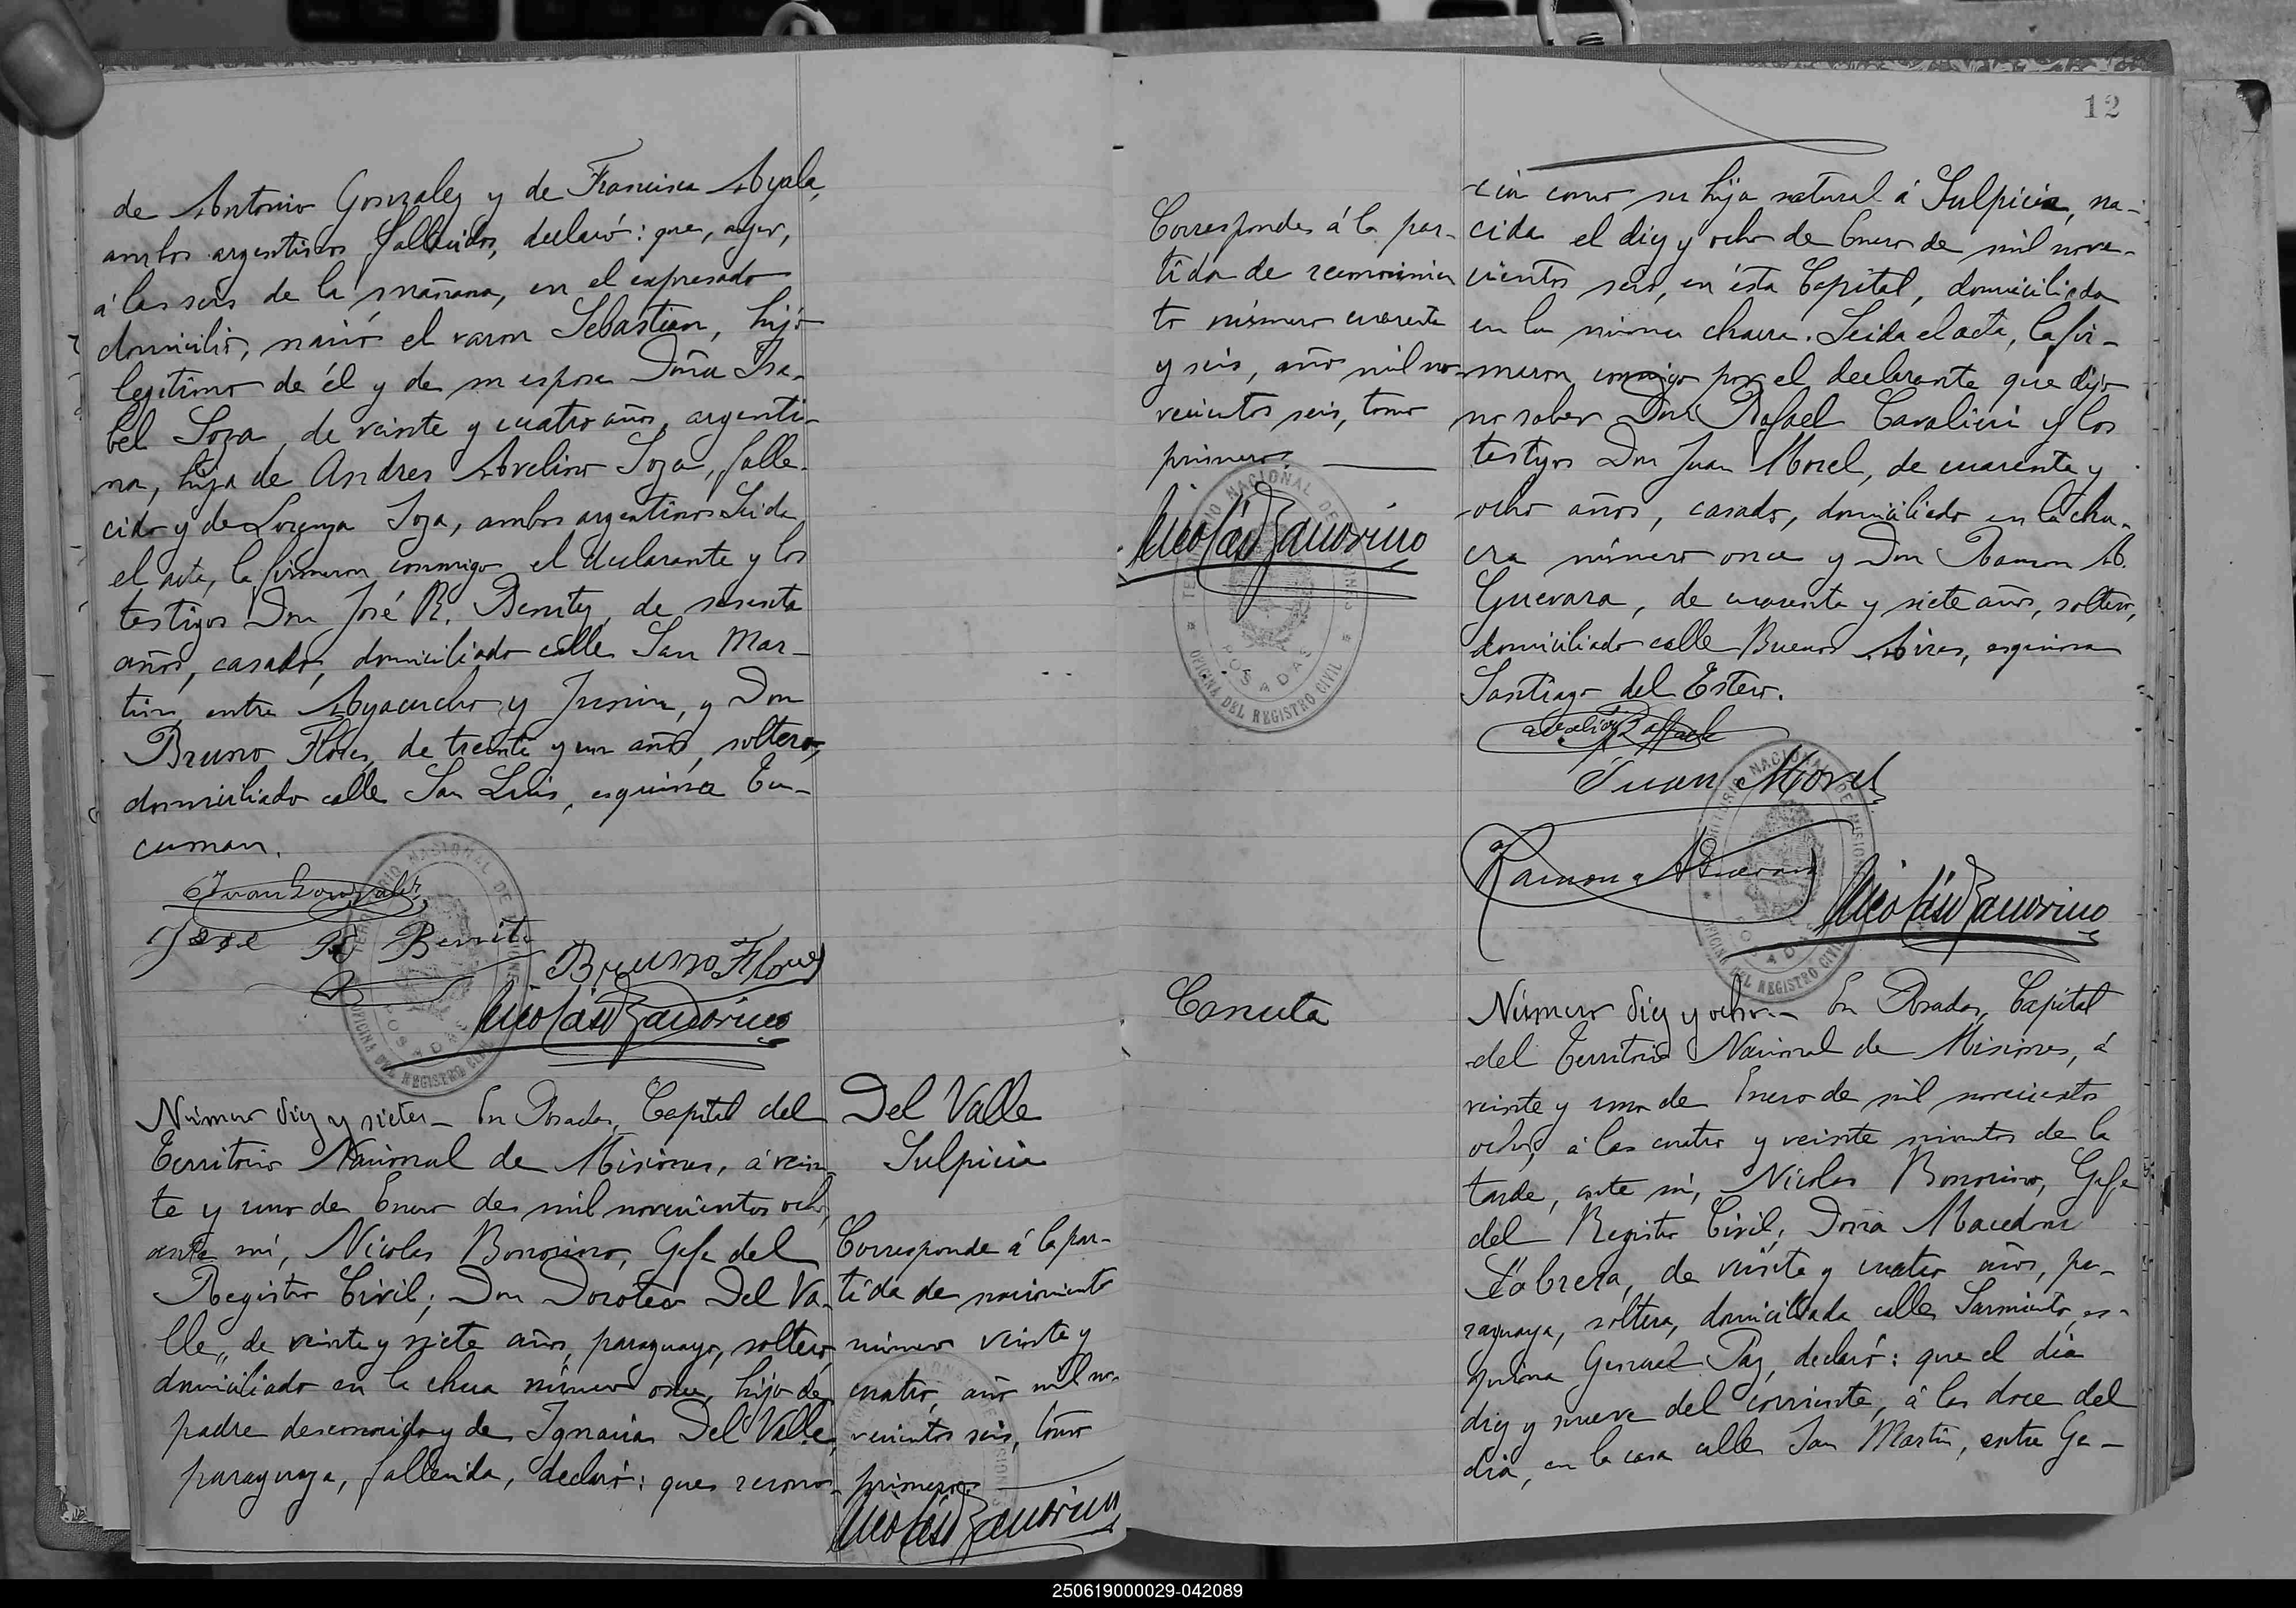 de Antonio Gonzalez y de Francisca Ayala,
ambos argentinos fallecidos, declaró: que, ayer,
á las seis de la mañana, en el expresado
domicilio, nació el varon Sebastian, hijo
legítimo de él y de su esposa Doña Isa-
bel Soza, de veinte y cuatro años, argenti-
na, hija de Andres Avelino Soza, falle-
cido y de Lorenza Soza, ambos argentinos Leida
el acta, la firmaron conmigo el declarante y los
testigos Don José R. Benitez, de sesenta
años, casado, domiciliado calle San Mar-
tin, entre Ayacucho y Junin, y Don
Bruno Flores, de treinta y un años, soltero,
domiciliado calle San Luis, esquina Tu-
cuman.
Juan Gonzalez
José R Benite
Bruno Flores
Nicolás Bonorino
Número diez y siete.- En Posadas, Capital del
Territorio Nacional de Misiones, á vein-
te y uno de Enero de mil novecientos ocho,
ante mí, Nicolas Bonorino, Gefe del
Registro Civil; Don Doroteo Del Va-
lle, de veinte y siete años, paraguayo, soltero
domiciliado en la chacra número once, hijo de
padre desconocido y de Ignacia Del Valle,
paraguaya, fallecida, declaró: que recono-
Del Valle
Sulpicia
Corresponde á la par-
tida de nacimiento
número veinte y
cuatro, año mil no-
vecientos seis, tomo
primero.
Nicolás Bonorino
12
Corresponde á la par-
tida de reconocimien
to número cuarenta
y seis, año mil no-
vecientos seis, tomo
primero.
TERRITORIO NACIONAL DE MISIONES
POSADAS
OFICINA DEL REGISTRO CIVIL
Nicolás Bonorino
cia como su hija natural á Sulpicia, na-
cida el diez y ocho de Enero de mil nove-
cientos seis, en ésta Capital, domiciliada
en la misma chacra. Leida el acta, la fir-
maron conmigo por el declarante que dijo
no saber Don Rafael Cavalieri y los
testigos Don Juan Morel, de cuarenta y
ocho años, casado, domiciliado en la cha-
cra número once y Don Ramon A.
Guevara, de cuarenta y siete años, soltero,
domiciliado calle Buenos Aires, esquina
Santiago del Estero.
Juan Morel
Ramon A Guevara
Nicolás Bonorino
Canuta
Número diez y ocho.- En Posadas, Capital
del Territorio Nacional de Misiones, á
veinte y uno de Enero de mil novecientos
ocho, á las cuatro y veinte minutos de la
tarde, ante mí, Nicolas Bonorino, Gefe
del Registro Civil, Doña Macedonia
Cabrera, de veinte y cuatro años, pa-
raguaya, soltera, domiciliada calle Sarmiento, es-
quina General Paz, declaró: que el día
diez y nueve del corriente, á las doce del
dia, en la casa calle San Martin, entre Ge-
250619000029-042089